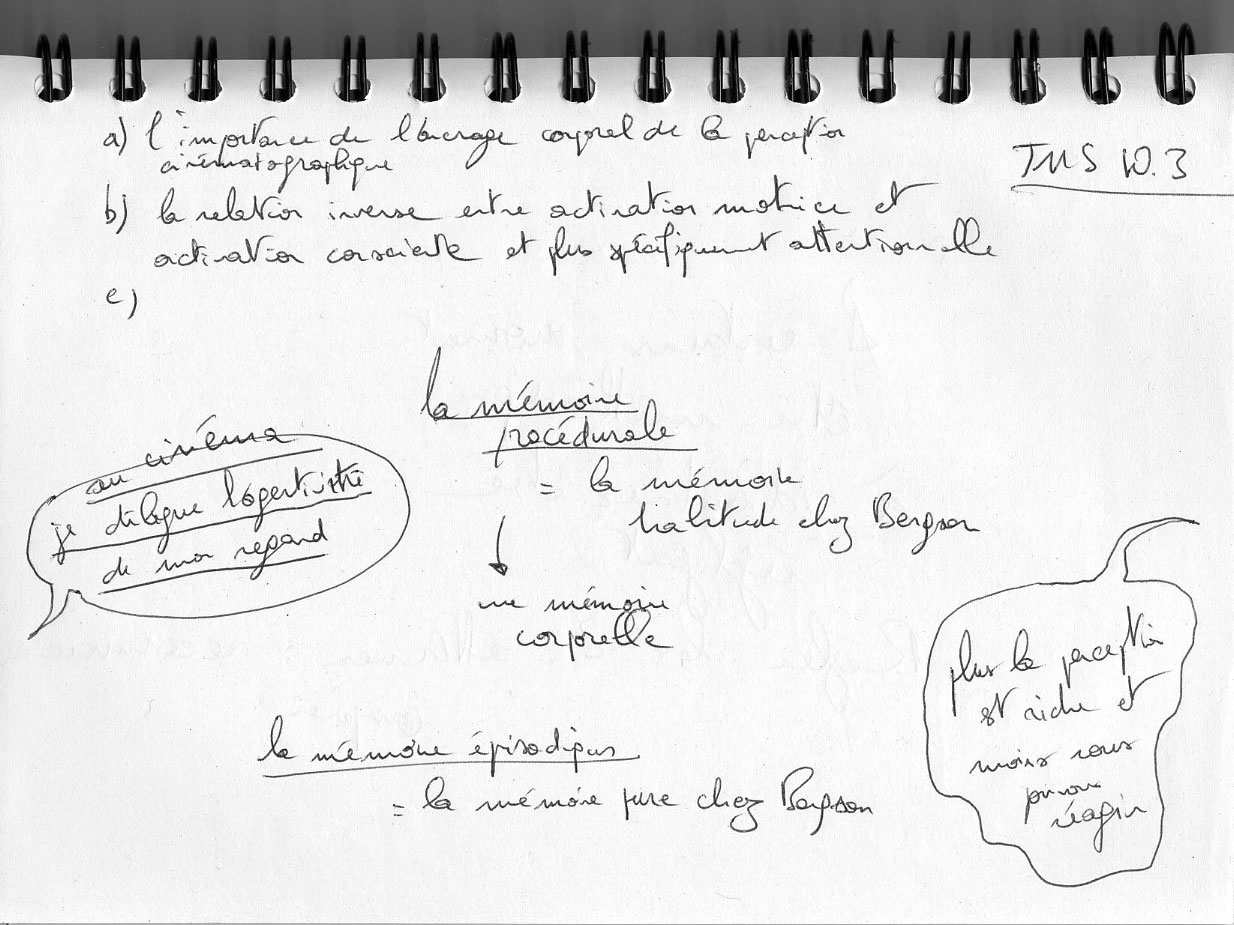 a) l'importance de l'ancrage corporel de la perception
cinématographique
TMS 10.3
b) la relation inverse entre activation motrice et
activation consciente et plus spécifiquement attentionnelle
c)
la mémoire
procédurale
= la mémoire
habitude chez Bergson
au cinéma
je délègue
de mon regard
une mémoire
corporelle
plus la perception
est riche et
moins nous
pouvons
réagir
la mémoire épisodique
= la mémoire pure chez Bergson